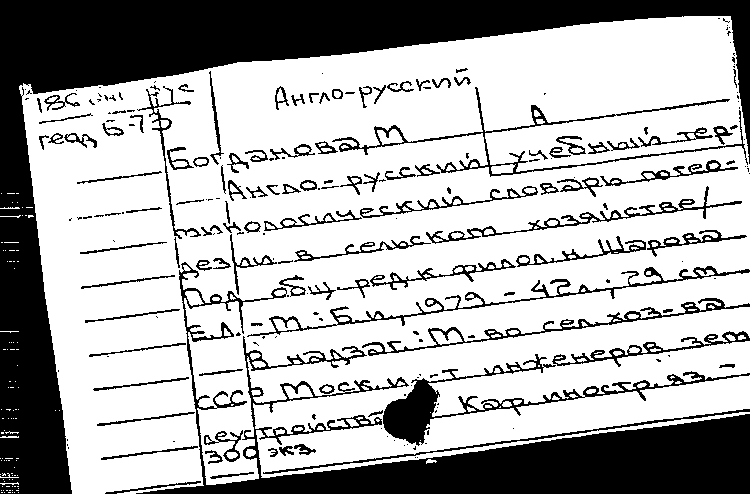 186 рус
Англо-русский
геод Б-73
А
Богданова, М
Англо-русский учебный тер-
минологический словарь по гео-
дезии в сельском хозяйстве/
Под общ. ред. к. филол. н. Шарова
Е.Л. - М.: Б.и., 1979. - 42л.; 29 см
В надзаг.: М-во сел. хоз-ва
СССР, Моск. ин-т инженеров зем
леустройства Каф. иностр. яз. -
300 экз.